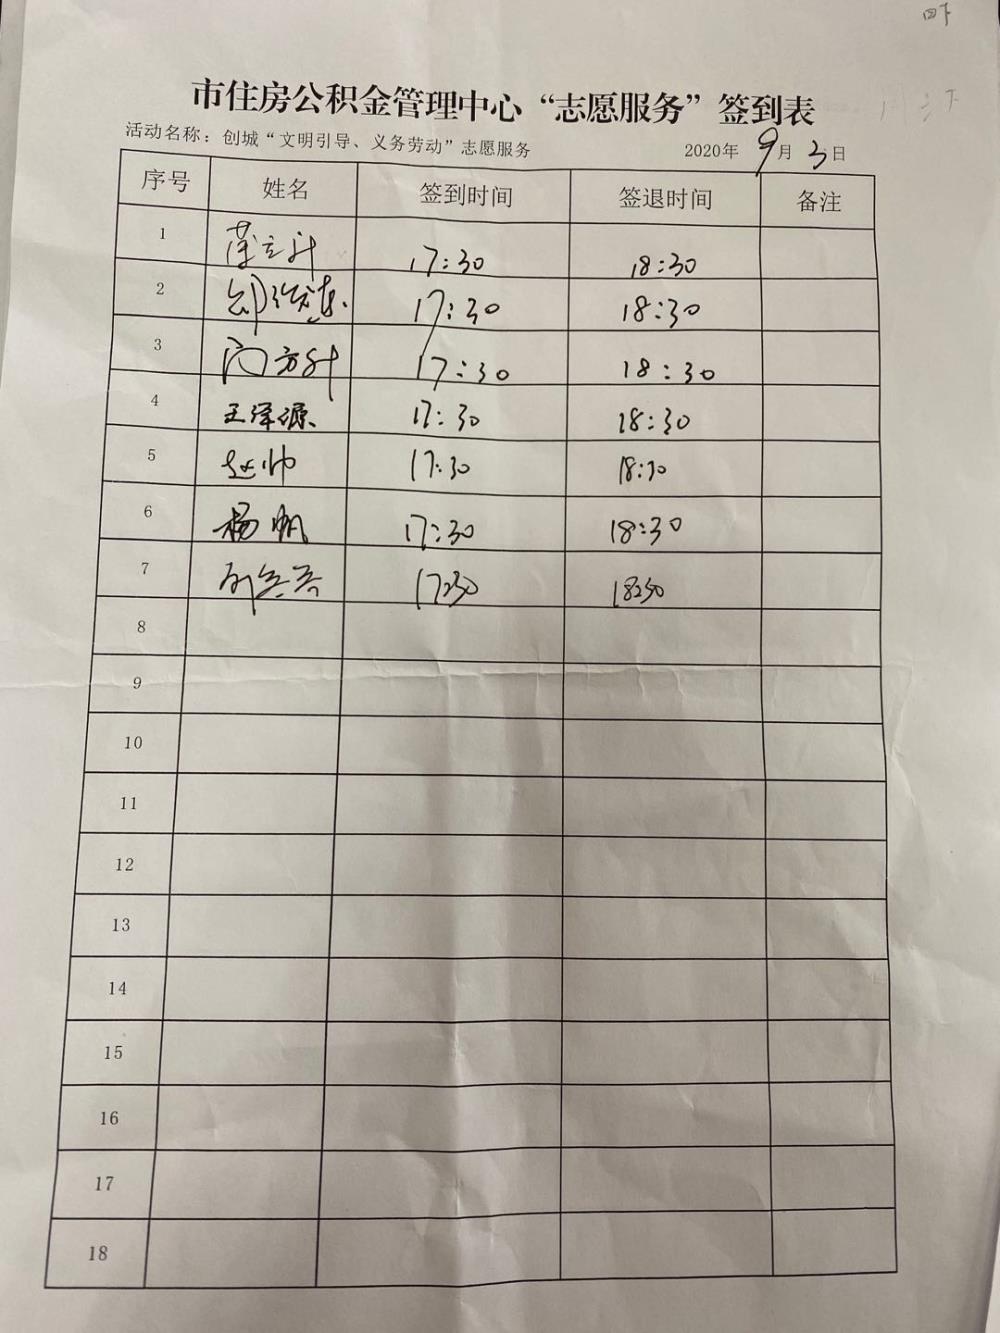 市住房公积金管理中心“志愿服务”签到表
活动名称：创城“文明引导、义务劳动”志愿服务 2020年9月3日
序号 姓名 签到时间 签退时间 备注
1 17:30 18:30
2 17:30 18:30
3 17:30 18:30
4 王泽源 17:30 18:30
5 赵帅 17:30 18:30
6 杨帆 17:30 18:30
7 17:30 18:30
8
9
10
11
12
13
14
15
16
17
18